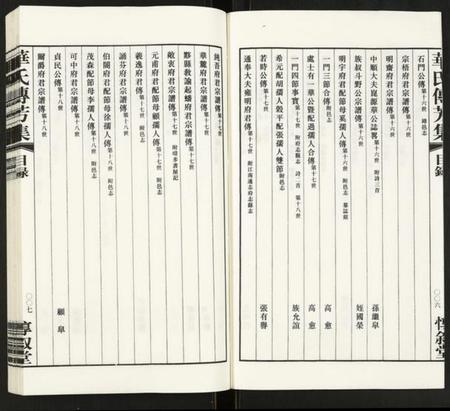 華氏傳芳集
目錄
〇〇六
惇敘堂
石門公傳 第十六世 錄邑志
宗梧府君宗譜傳 第十六世
明齋府君宗譜傳 第十六世
中順大夫崑源華公誌銘 第十六世 附詩三首 孫繼臯
族叔斗野公宗譜傳 第十六世 姪國榮
明宇府君配節母奚孺人傳 第十六世
一門三節合傳 附邑志 高愈
處士有一華公暨配過孺人合傳 第十七世 高愈
一門四節事實 第十七世 附府志縣志 詩二首 第十八世 族允誼
希元配胡孺人暨平配張孺人雙節 附邑志
若時公傳 第十七世 張有譽
通奉大夫鹿明府君傳 第十七世 附江南通志府志縣志
純吾府君宗譜傳 第十七世
華麓府君宗譜傳 第十七世
黟縣教諭起蟠府君宗譜傳 第十七世
啟衷府君宗譜傳 第十七世
元甫府君配節母顧孺人傳 第十七世 附邑志
義逸府君傳 第十七世 附邑志
誦芬府君宗譜傳 第十七世
伯闇府君配節母徐孺人傳 第十七世
茂森配節母李孺人傳 第十八世 附邑志
可中府君宗譜傳 第十八世
貞民公傳 第十八世 附邑志 顧臯
爾爵府君宗譜傳 第十八世
華氏傳芳集
目錄
〇〇七
惇敘堂